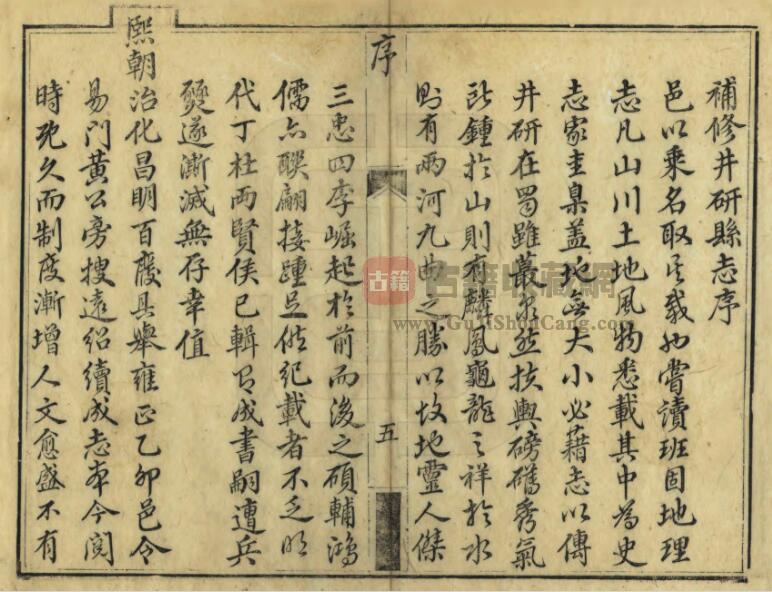 補修井研縣志序
邑以乘名取其載也嘗讀班固地理
志凡山川土地風物悉載其中為史
志家圭臬蓋地無大小必藉志以傳
井研在蜀雖叢爾然扶輿磅礡秀氣
所鍾於山則有麟鳳龜龍之祥於水
則有兩河九曲之勝以故地靈人傑
三忠四李崛起於前而後之碩輔鴻
儒亦聯翩接踵足供紀載者不乏明
代丁杜兩賢侯已輯有成書嗣遭兵
燹遂漸滅無存幸值
熙朝治化昌明百廢具舉雍正乙卯邑令
易門黃公旁搜遠紹續成志本今閱
時既久而制度漸增人文愈盛不有
序
五
古籍
古籍收藏網
www.GuJiShouCang.com